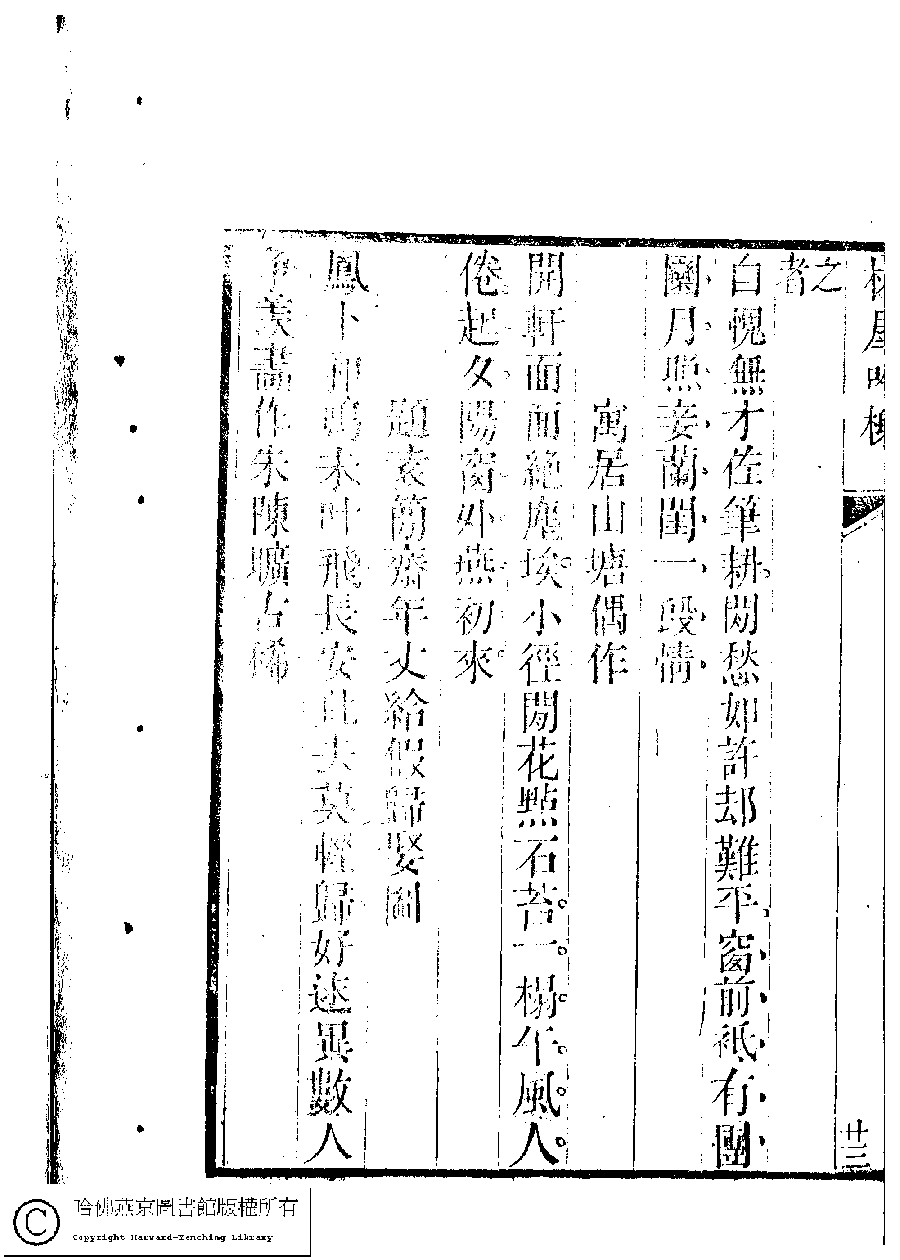 之
者
自愧無才佐筆耕閒愁如許却難平窗前祇有團
圞月照妾蘭閨一段情
寓居山塘偶作
開軒面面絶塵埃小徑閒花點石苔一榻午風人
倦起夕陽窗外燕初來
題袁簡齋年丈給假歸娶圖
鳳卜和鳴未叶飛長安此去莫輕歸好逑異數人
爭羨畵作朱陳曠古稀
廿三
哈佛燕京圖書館版權所有
Copyright Harvard-Yenching Library